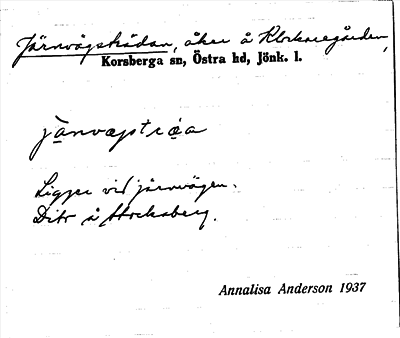 Järnvägsträdan, åker å Klockaregården,
Korsberga sn, Östra hd, Jönk. l.
järnvägstráa
Ligger vid järnvägen.
Dito å Stocksberg.
Annalisa Anderson 1937